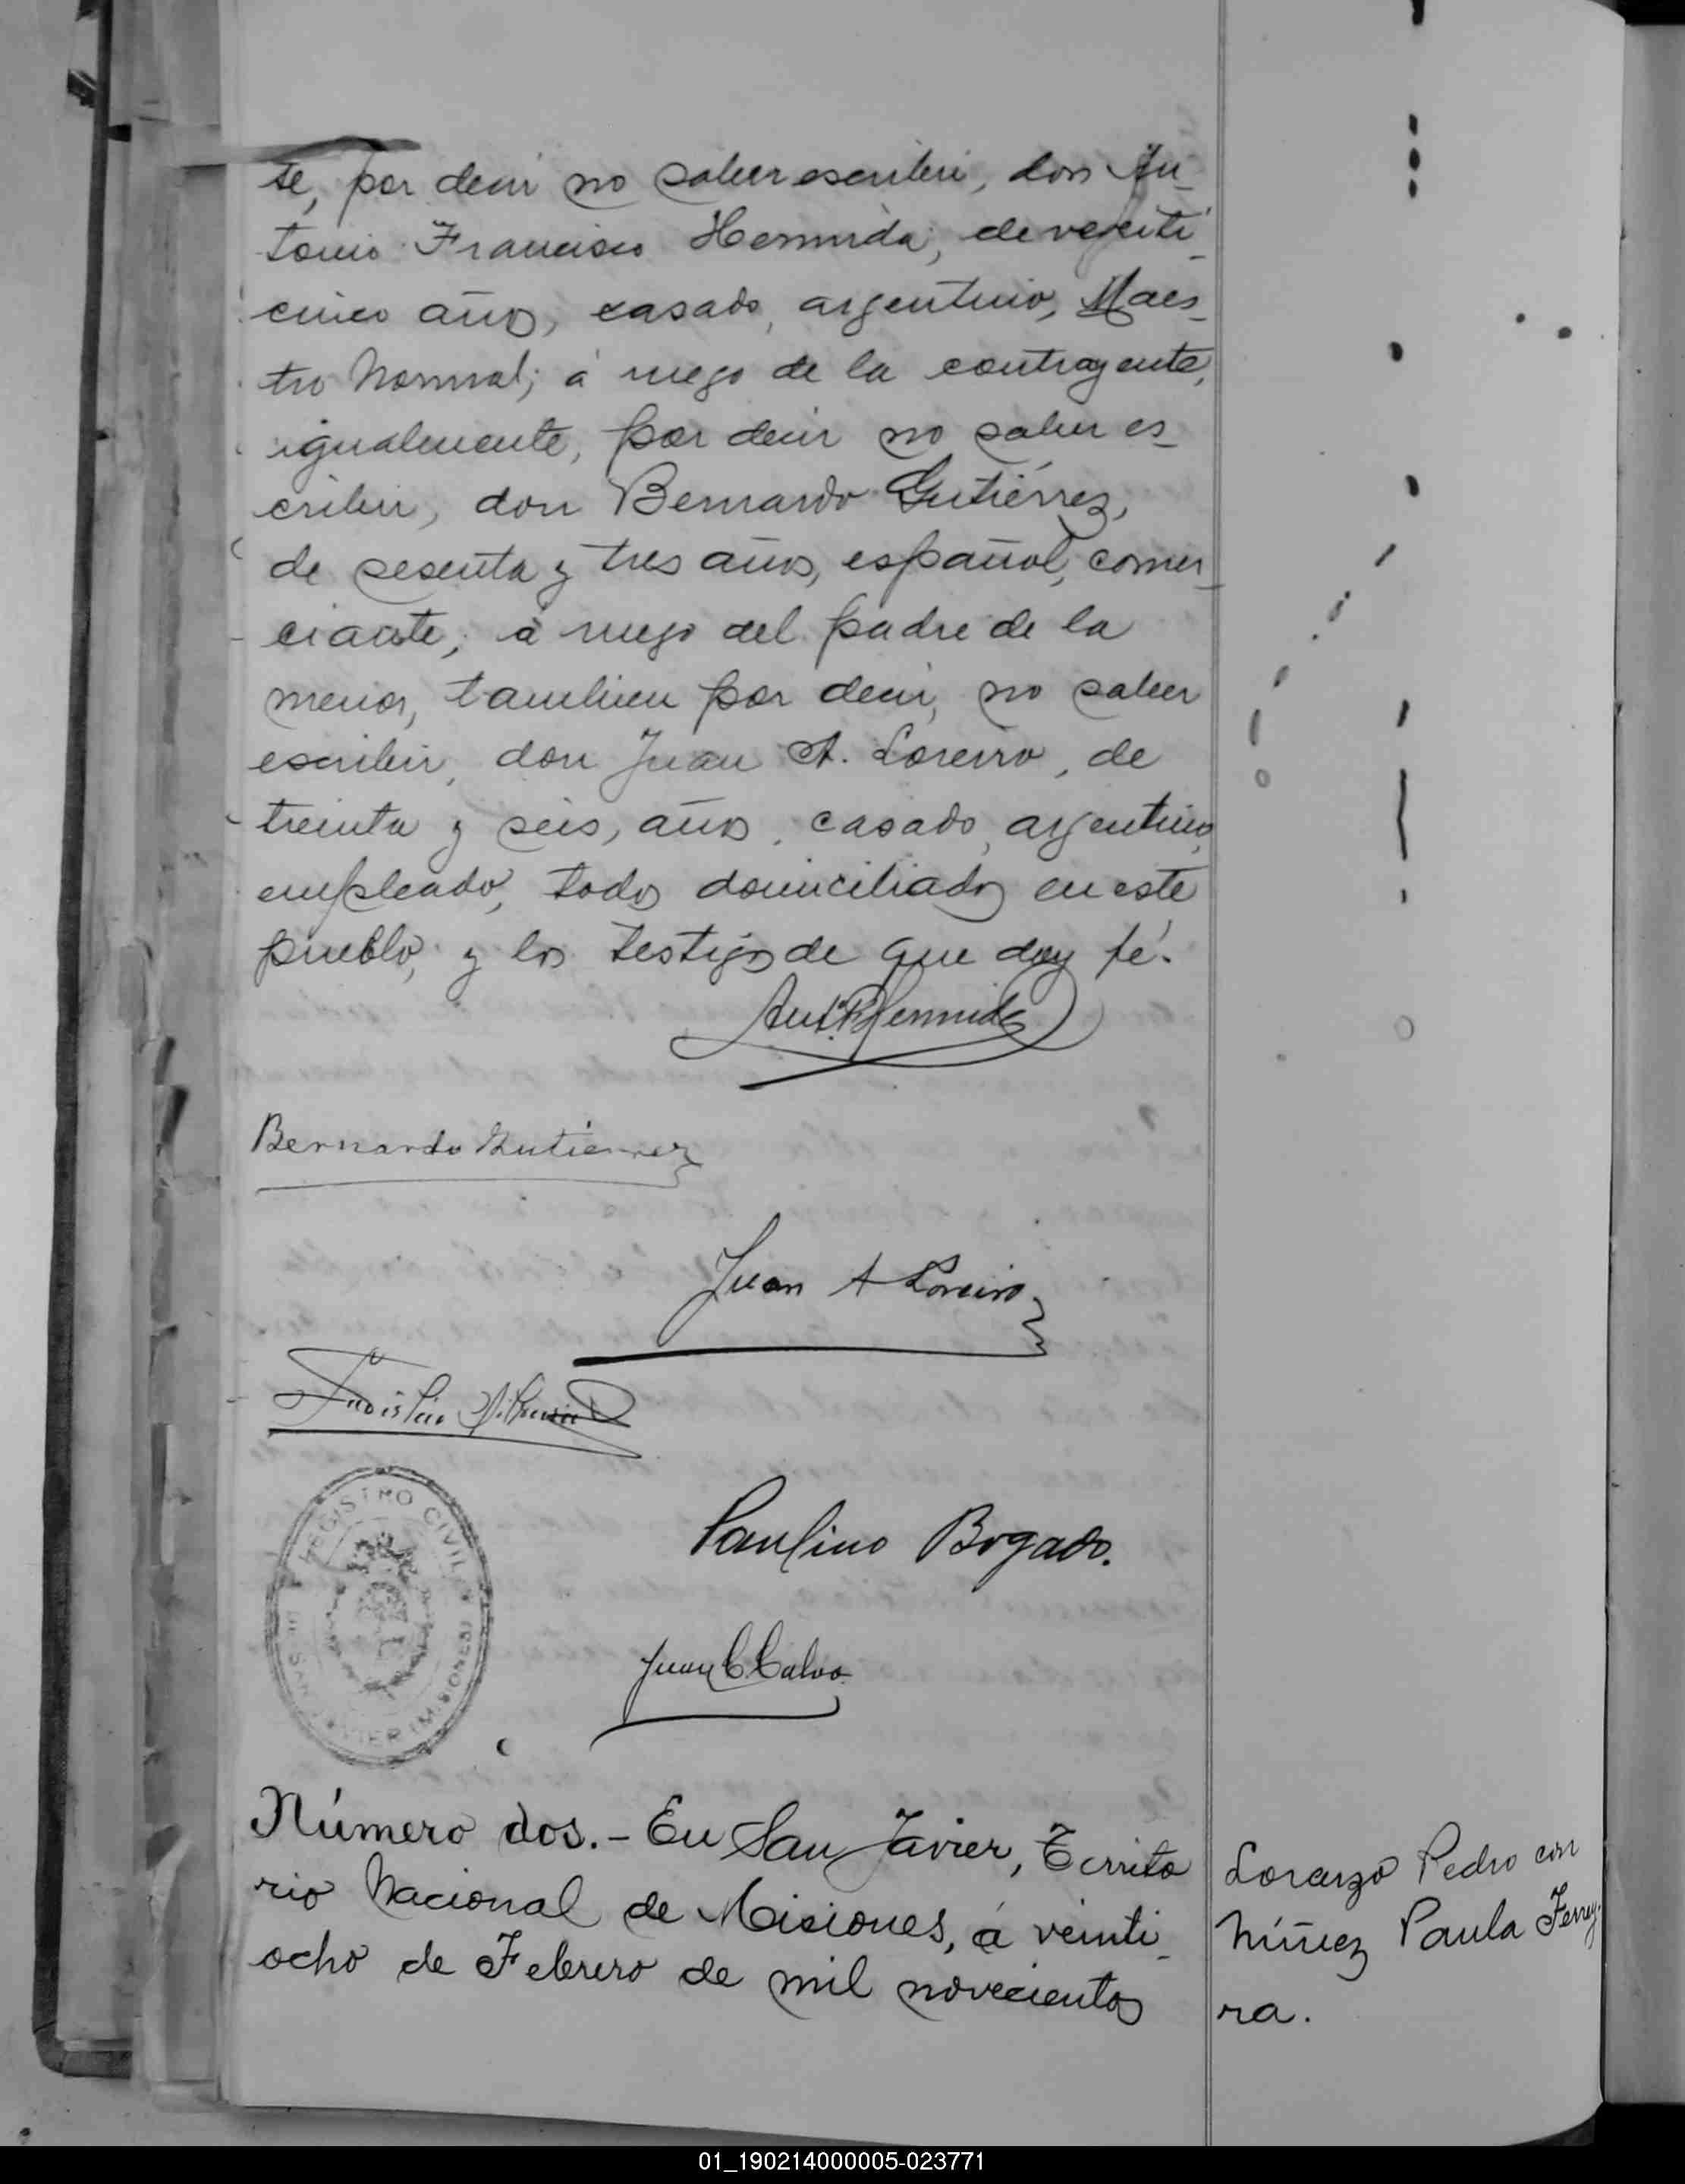 te, por decir no saber escribir, don An-
tonio Francisco Hermida, de veinti-
cinco años, casado, argentino, Maes-
tro Normal; á ruego de la contrayente,
igualmente, por decir no saber es-
cribir, don Bernardo Gutiérrez,
de sesenta y tres años, español, comer-
ciante; á ruego del padre de la
menor, tambien por decir, no saber
escribir, don Juan A. Loreiro, de
treinta y seis, años, casado, argentino,
empleado, todos domiciliados en este
pueblo, y los testigos de que doy fé.
Ant. F. Hermida
Bernardo Gutierrez
Juan A Loreiro
Paulino Bogado.
REGISTRO CIVIL
DE SAN JAVIER (MISIONES)
Juan C Calvo
Número dos. - En San Javier, Territo
rio Nacional de Misiones, á veinti-
ocho de Febrero de mil novecientos
Lorenzo Pedro con
Núñez Paula Ferrey-
ra.
01_190214000005-023771